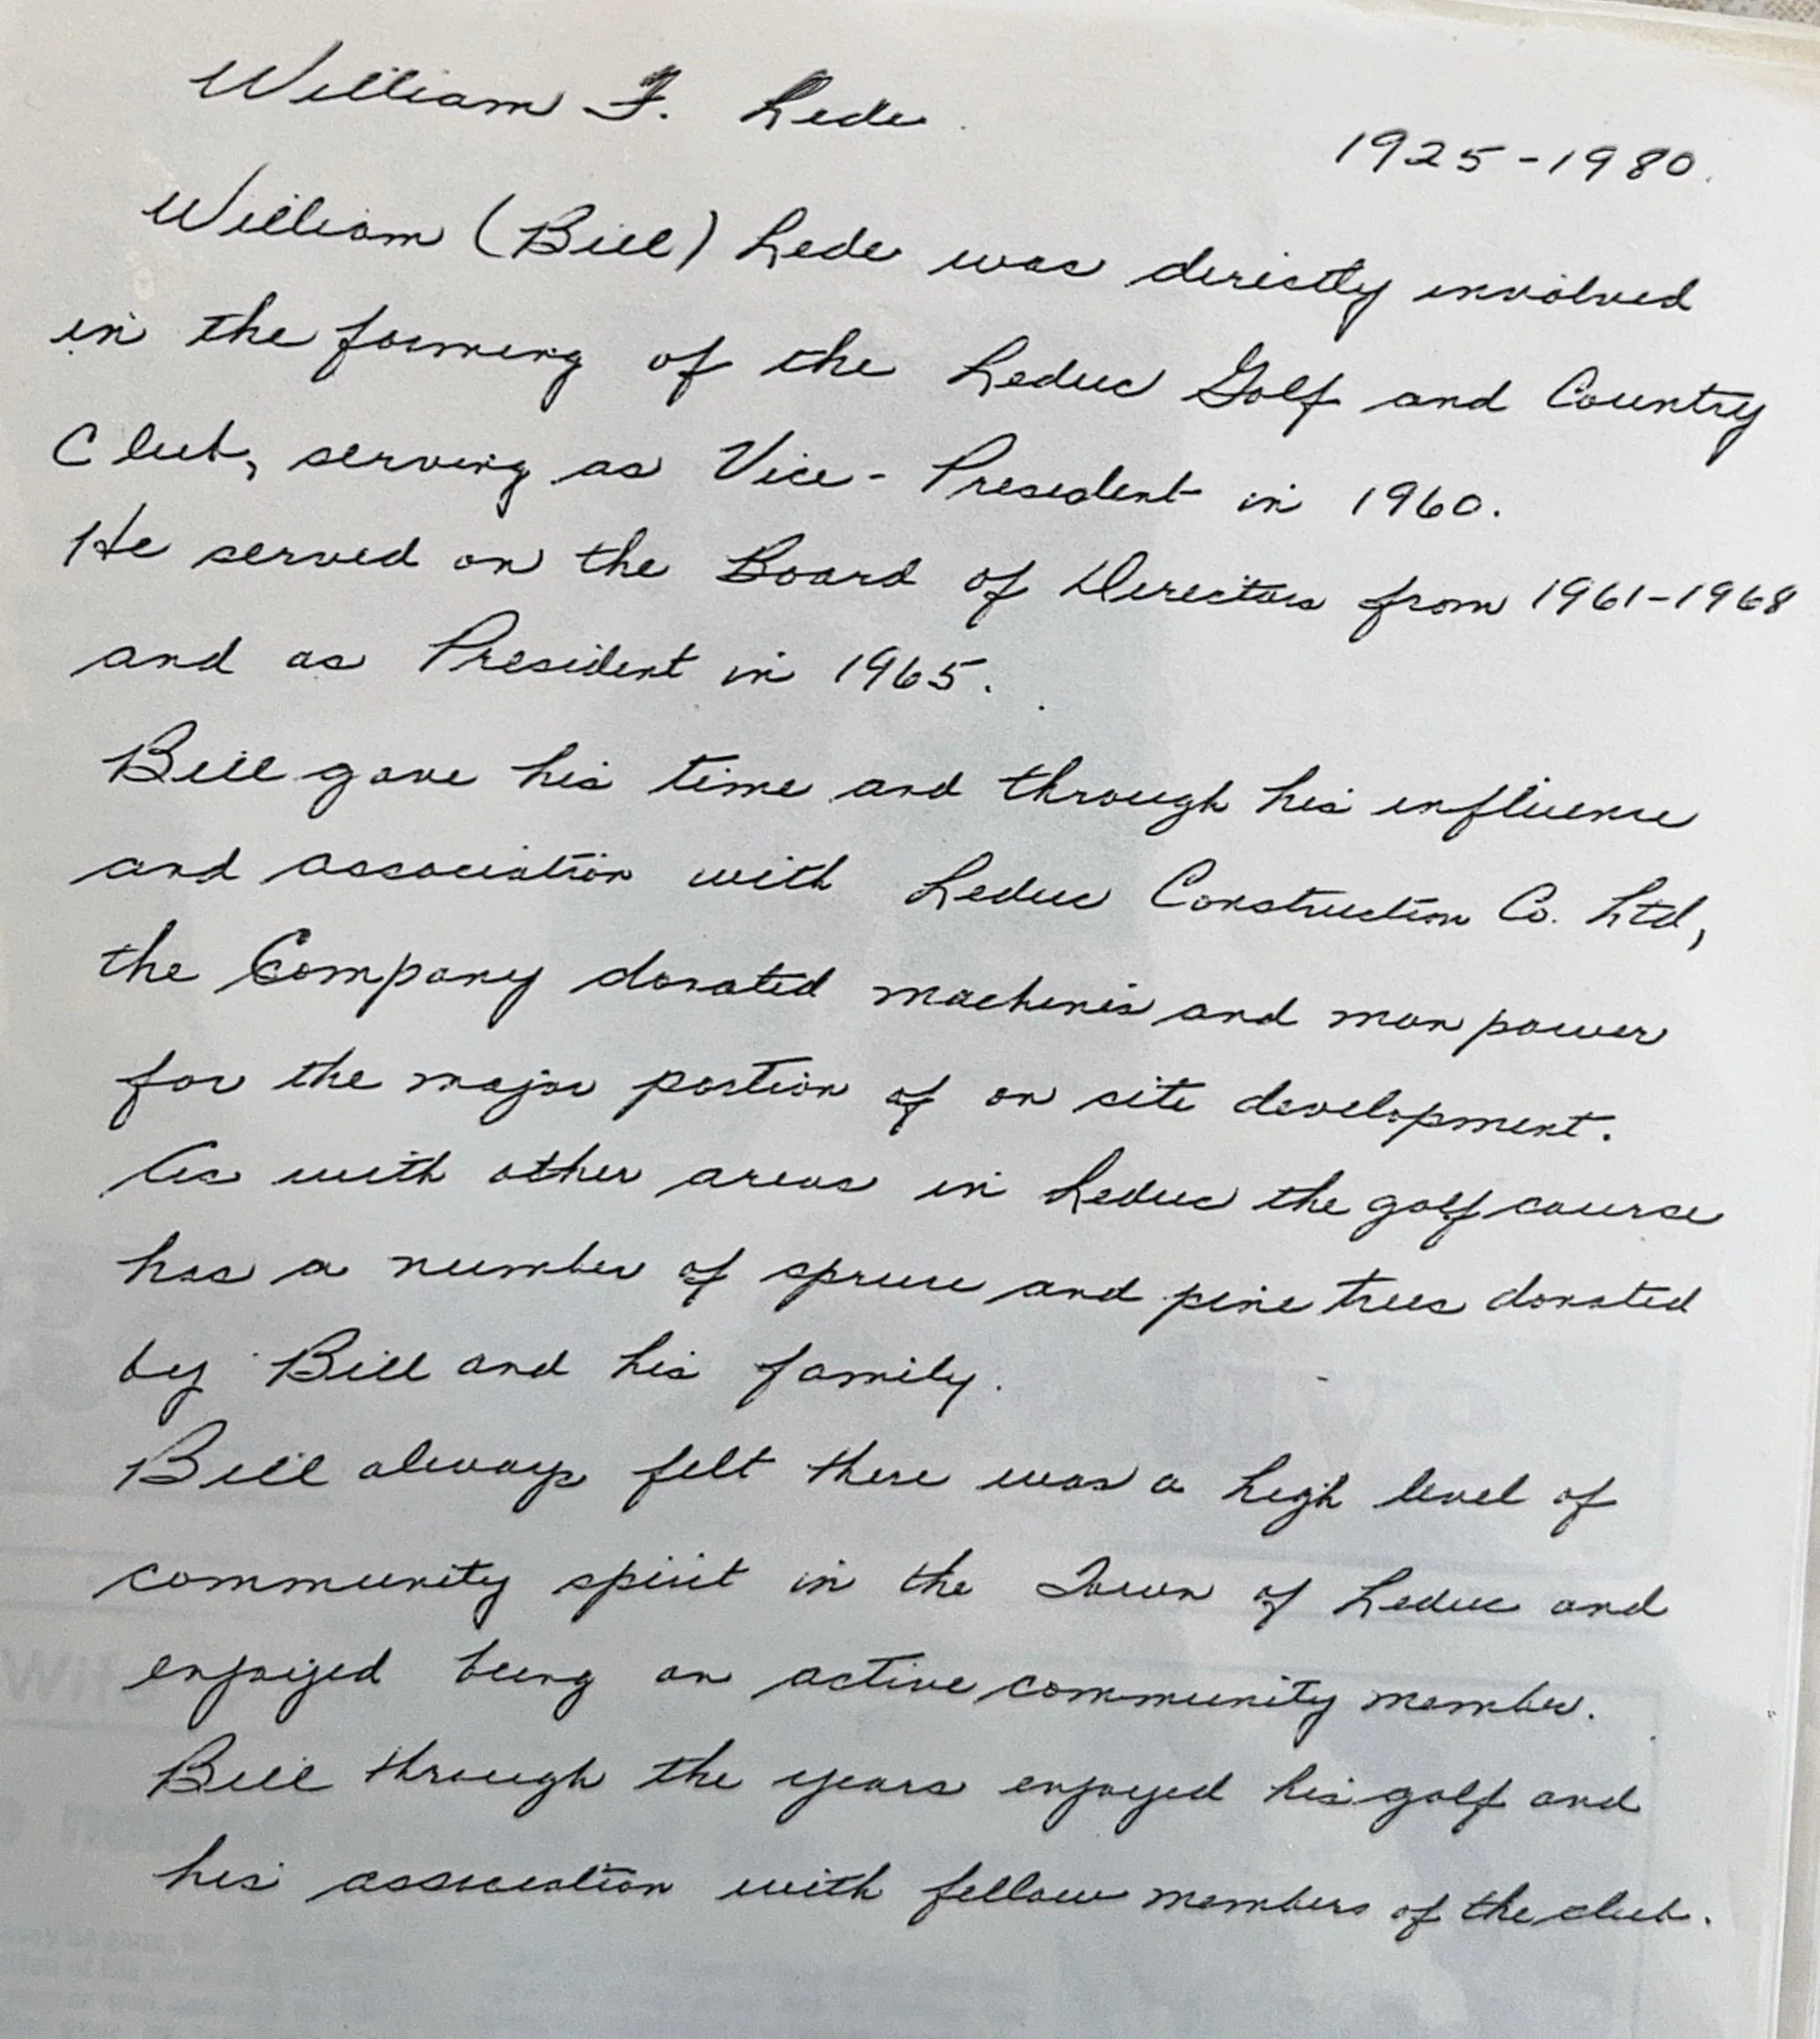 William F. Lede
1925-1980.
William (Bill) Lede was directly involved
in the forming of the Leduc Golf and Country
Club, serving as Vice-President in 1960.
He served on the Board of Directors from 1961-1968
and as President in 1965.
Bill gave his time and through his influence
and association with Leduc Construction Co. Ltd,
the Company donated machines and man power
for the major portion of on site development.
As with other areas in Leduc the golf course
has a number of spruce and pine trees donated
by Bill and his family.
Bill always felt there was a high level of
community spirit in the Town of Leduc and
enjoyed being an active community member.
Bill through the years enjoyed his golf and
his association with fellow members of the club.